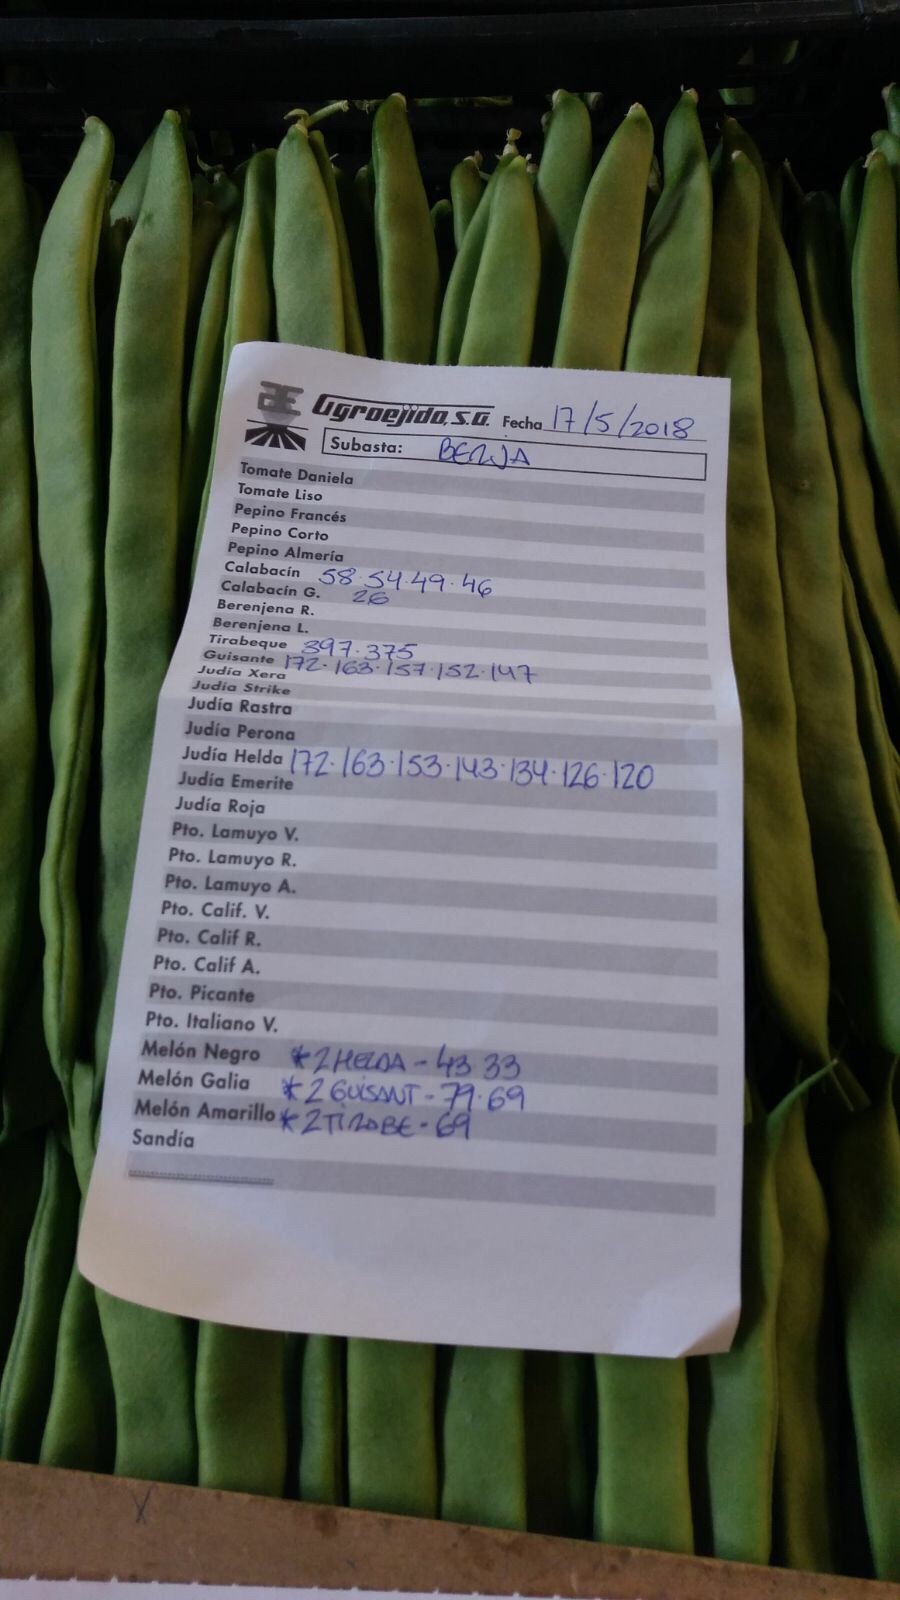 Agroejido, S.A. Fecha 17/5/2018
Subasta: BERJA
Tomate Daniela
Tomate Liso
Pepino Francés
Pepino Corto
Pepino Almería
Calabacín 58·54·49·46
Calabacín G. 26
Berenjena R.
Berenjena L.
Tirabeque 397·375
Guisante 172·163·157·152·147
Judía Xera
Judía Strike
Judía Rastra
Judía Perona
Judía Helda 172·163·153·143·134·126·120
Judía Emerite
Judía Roja
Pto. Lamuyo V.
Pto. Lamuyo R.
Pto. Lamuyo A.
Pto. Calif. V.
Pto. Calif R.
Pto. Calif A.
Pto. Picante
Pto. Italiano V.
Melón Negro *2 HELDA - 43 33
Melón Galia *2 GUISANT - 79·69
Melón Amarillo *2 TIRABE - 69
Sandía
X